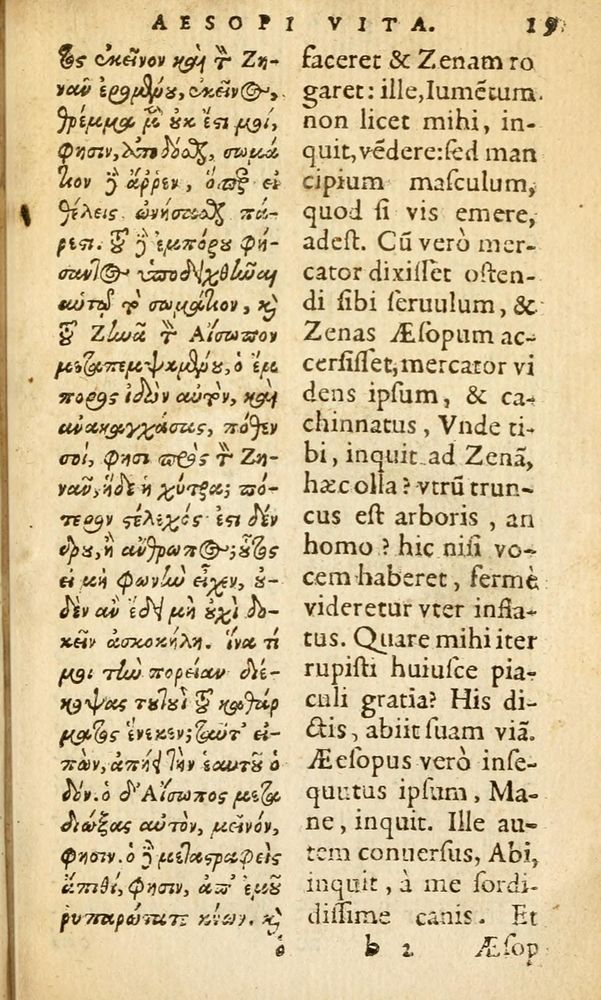 AESOPI VITA. 19
τος ἐκεῖνον καὶ τὸν Ζη-
ναῦν ἐρομένου, ἐκεῖνος,
θρέμμα μὲν οὐκ ἔστι μοι,
φησιν, ἀποδόσθαι, σωμά
τιον δὲ ἄρρεν, ὅπερ εἰ
θέλεις ὠνήσασθαι πά-
ρεστι. τοῦ δὲ ἐμπόρου φή-
σαντος ὑποδειχθῆναι
αὐτῷ τὸ σωμάτιον, καὶ
τοῦ Ζηνᾶ τὸν Αἴσωπον
μεταπεμψαμένου, ὁ ἔμ
πορος ἰδὼν αὐτὸν, καὶ
ἀνακαγχάσας, πόθεν
σοί, φησι πρὸς τὸν Ζη-
ναῦν, ἥδε ἡ χύτρα; πό-
τερον στέλεχός ἐστι δέν
δρου, ἢ ἄνθρωπος; οὗτος
εἰ μὴ φωνὴν εἶχεν, οὐ-
δὲν ἂν ἔδει μὴ οὐχὶ δο-
κεῖν ἀσκοκήλη. ἵνα τί
μοι τὴν πορείαν διέ-
κοψας τουτουὶ τοῦ καθάρ
ματος ἕνεκεν; ταῦτ' εἰ-
πὼν, ἀπῄει τὴν ἑαυτοῦ ὁ
δόν. ὁ δ' Αἴσωπος μετα
διώξας αὐτὸν, μεῖνόν,
φησιν. ὁ δὲ μεταστραφεὶς
ἄπιθί, φησιν, ἀπ' ἐμοῦ
ρυπαρώτατε κύων. καὶ
ὁ
faceret & Zenam ro
garet: ille, Iumētum
non licet mihi, in-
quit, vēdere: ſed man
cipium maſculum,
quod ſi vis emere,
adeſt. Cũ verò mer-
cator dixiſſet oſten-
di ſibi ſeruulum, &
Zenas Æſopum ac-
cerſiſſet, mercator vi
dens ipſum, & ca-
chinnatus, Vnde ti-
bi, inquit ad Zenã,
hæc olla? vtrũ trun-
cus eſt arboris, an
homo? hic niſi vo-
cem haberet, fermè
videretur vter infla-
tus. Quare mihi iter
rupiſti huiuſce pia-
culi gratia? His di-
ctis, abiit ſuam viã.
Æeſopus verò inſe-
quutus ipſum, Ma-
ne, inquit. Ille au-
tem conuerſus, Abi,
inquit, à me ſordi-
diſſime canis. Et
b 2 Æſop